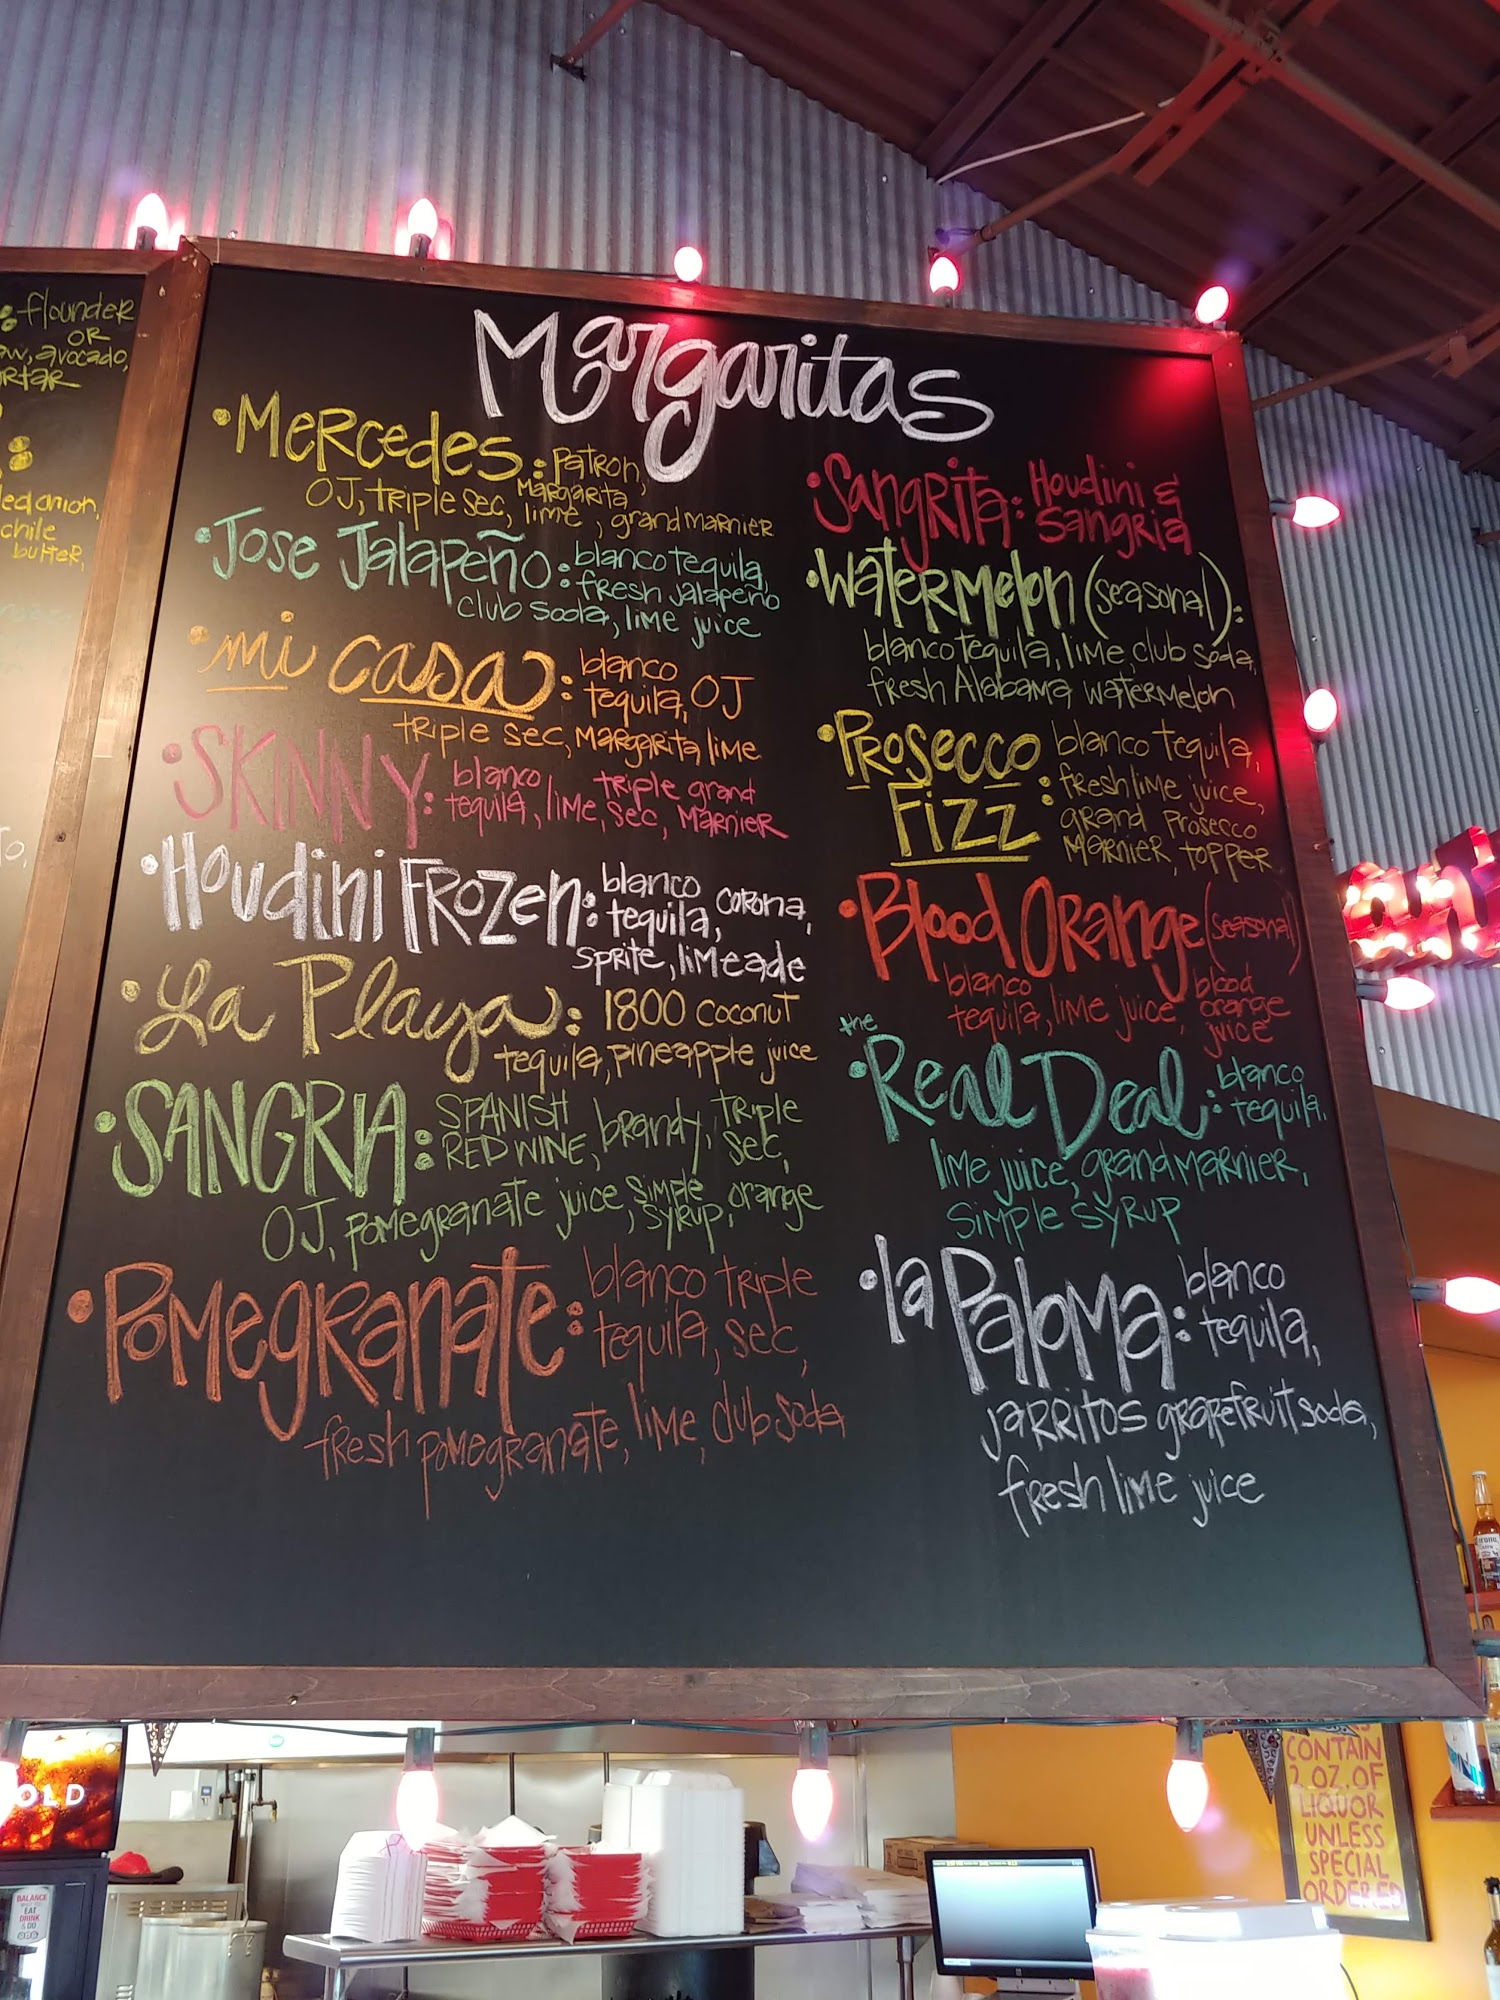 flounder
OR
avocado,
Margaritas
•Mercedes: Patron,
OJ, triple sec, Margarita lime, grand Marnier
•Jose Jalapeño: blanco tequila,
fresh jalapeño
club soda, lime juice
•mi casa: blanco
tequila, OJ
triple sec, Margarita lime
•SKINNY: blanco tequila, lime, triple sec, grand Marnier
•Houdini Frozen: blanco
tequila, corona,
sprite, limeade
•La Playa: 1800 coconut
tequila, pineapple juice
•SANGRIA: SPANISH
RED WINE, brandy, triple sec,
OJ, pomegranate juice, simple syrup, orange
•Pomegranate: blanco tequila, triple sec,
fresh pomegranate, lime, club soda
•Sangrita: Houdini &
Sangria
•Watermelon (seasonal):
blanco tequila, lime, club soda,
fresh Alabama watermelon
•Prosecco
Fizz: blanco tequila,
fresh lime juice,
grand Marnier, prosecco topper
•Blood Orange (seasonal)
blanco tequila, lime juice, blood orange juice
•the Real Deal: blanco
tequila,
lime juice, grand Marnier,
simple syrup
•la Paloma: blanco
tequila,
jarritos grapefruit soda,
fresh lime juice
chile
butter,
CONTAIN
2 OZ. OF
LIQUOR
UNLESS
SPECIAL
ORDERED
BALANCE
EAT
DRINK
& DO